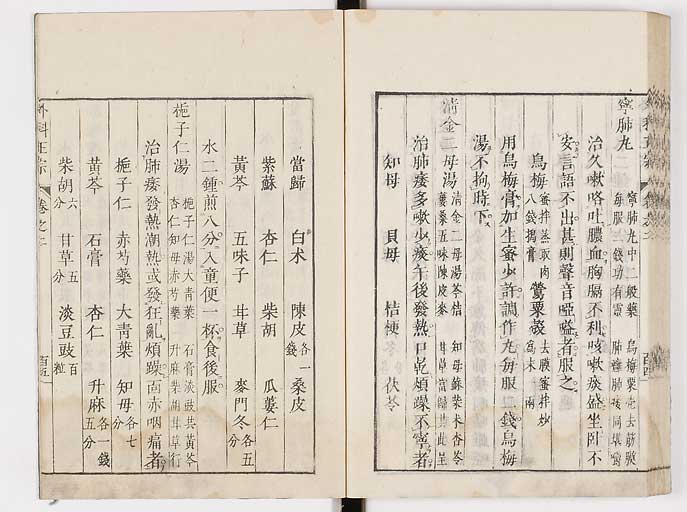 寧肺丸
寧肺丸中二般藥 烏梅粟壳去筋膜
每服二錢功有靈 肺癰肺痿同堪嘗
治久嗽咯吐膿血胸膈不利咳嗽痰盛坐卧不
安言語不出甚則聲音啞嗌者服之
烏梅 蜜拌蒸取肉八錢搗膏 鶯粟殼 去膜蜜拌炒為末
用烏梅膏加生蜜少許調作丸每服二錢烏梅
湯不拘時下
清金二母湯
清金二母湯苓桔
蔞桑五味陳皮麥
治肺痿多嗽少痰午後發熱口乾煩躁不寧者
知母 貝母 桔梗 伏苓
當歸 白术 陳皮各一錢 桑皮
紫蘇 杏仁 柴胡 瓜蔞仁
黃芩 五味子 甘草 麥門冬各五分
水二鍾煎八分入童便一杯食後服
梔子仁湯
梔子仁湯大青葉 石膏淡豉共黃芩
杏仁知母赤芍藥 升麻柴胡甘草行
治肺痿發熱潮熱或發狂亂煩躁面赤咽痛者
梔子仁 赤芍藥 大青葉 知母各七分
黃芩 石膏 杏仁 升麻各一錢五分
柴胡六分 甘草五分 淡豆豉百粒
外科正宗 卷之二